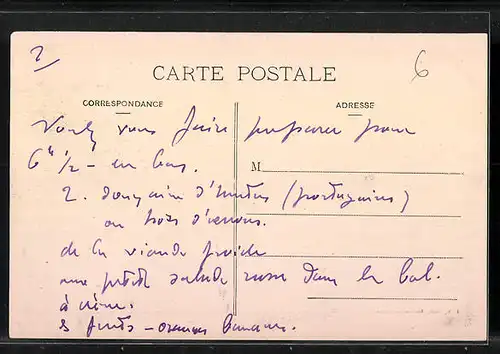 2
6
CARTE POSTALE
CORRESPONDANCE
ADRESSE
Voulez vous faire préparer pour
6h 1/2 - en bas.
M
2. douzaine d'huitres (portugaises)
ou hors d'œuvres.
de la viande froide
une petite salade russe dans le bol
à crème.
& fruits - oranges bananes.